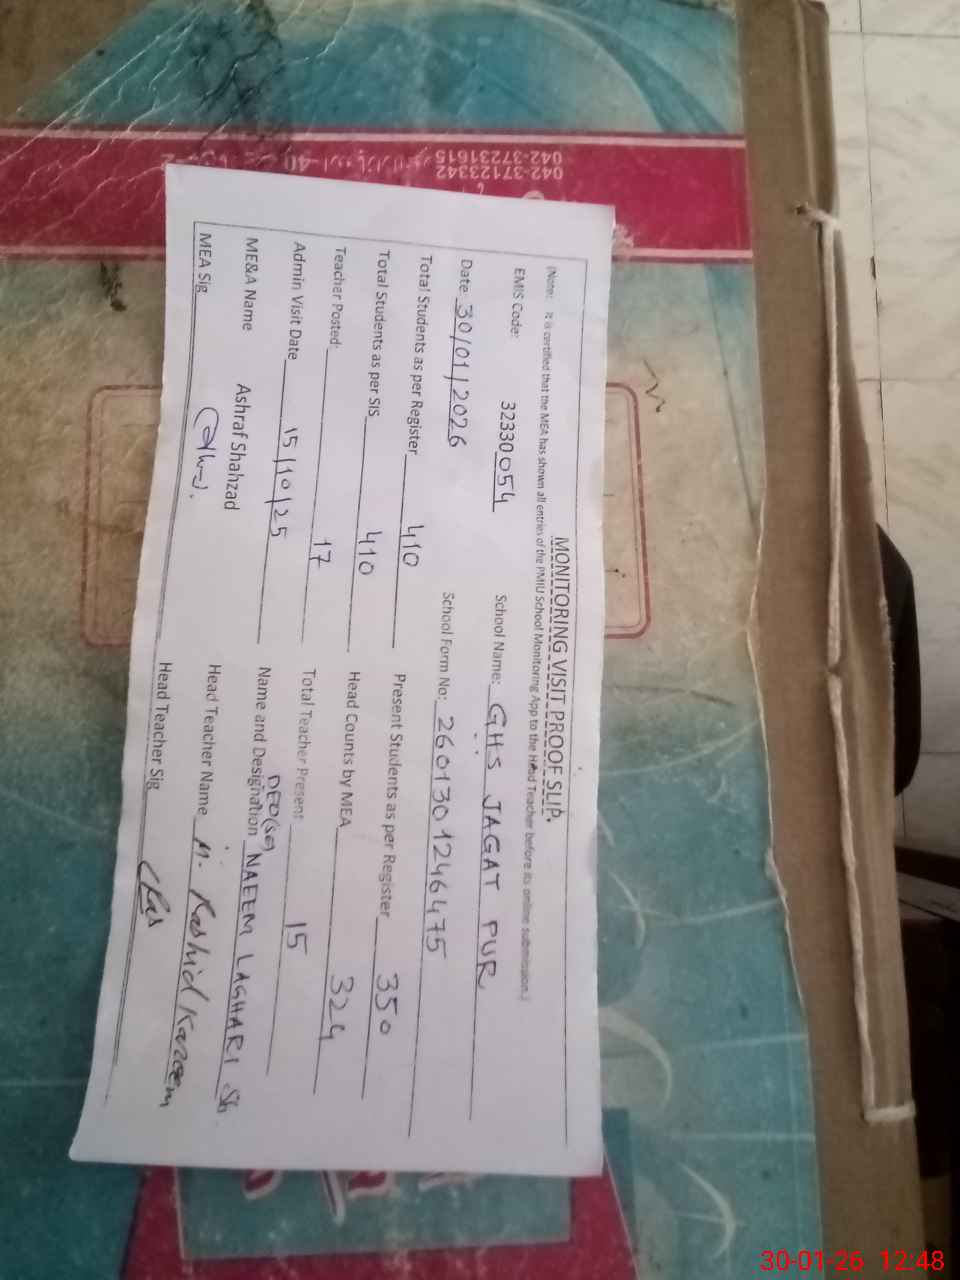 MONITORING VISIT PROOF SLIP.
(Note: It is certified that the MEA has shown all entries of the PMIU School Monitoring App to the Head Teacher before its online submission.)
EMIS Code: 32330054 School Name: GHS JAGAT PUR
Date: 30/01/2026 School Form No: 2601301246475
Total Students as per Register 410 Present Students as per Register 350
Total Students as per SIS 410 Head Counts by MEA 324
Teacher Posted: 17 Total Teacher Present 15
Admin Visit Date 15/10/25 Name and Designation NAEEM LAGHARI Sb
DEO(SE)
ME&A Name Ashraf Shahzad Head Teacher Name M. Rashid Kareem
MEA Sig Head Teacher Sig
042-37123342
042-37231615
30-01-26 12:48